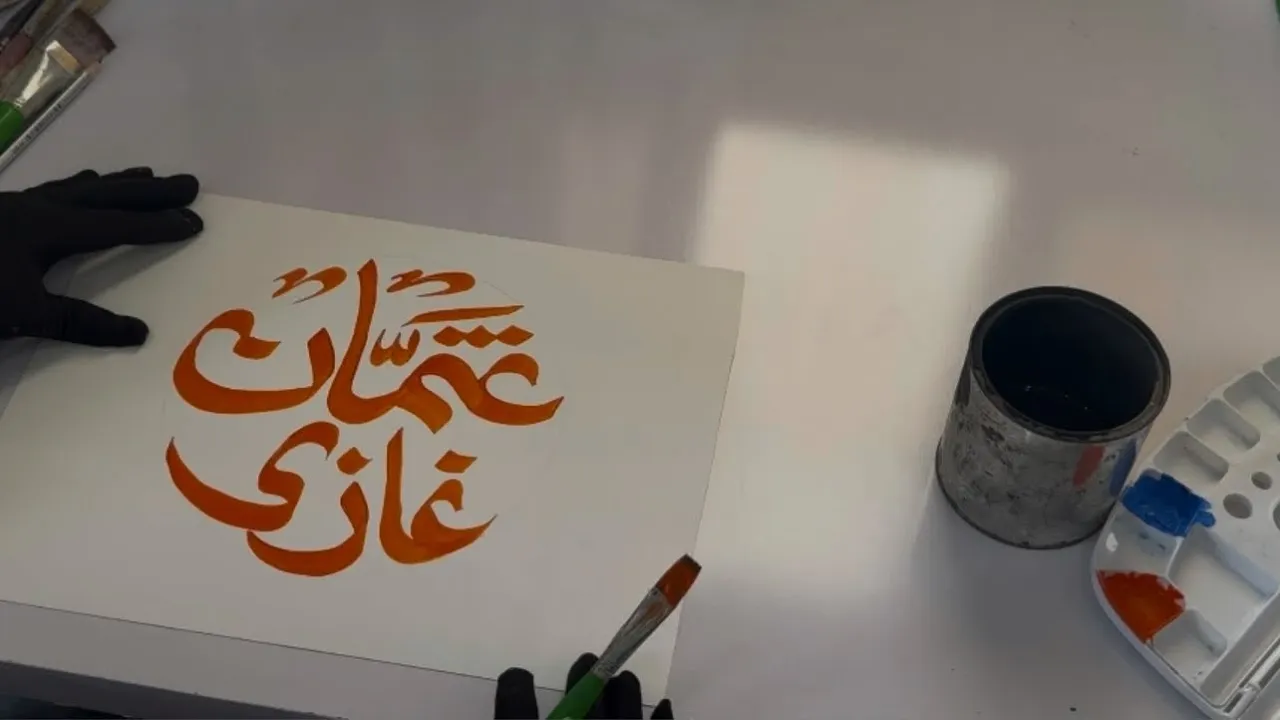 عثمان
غازی